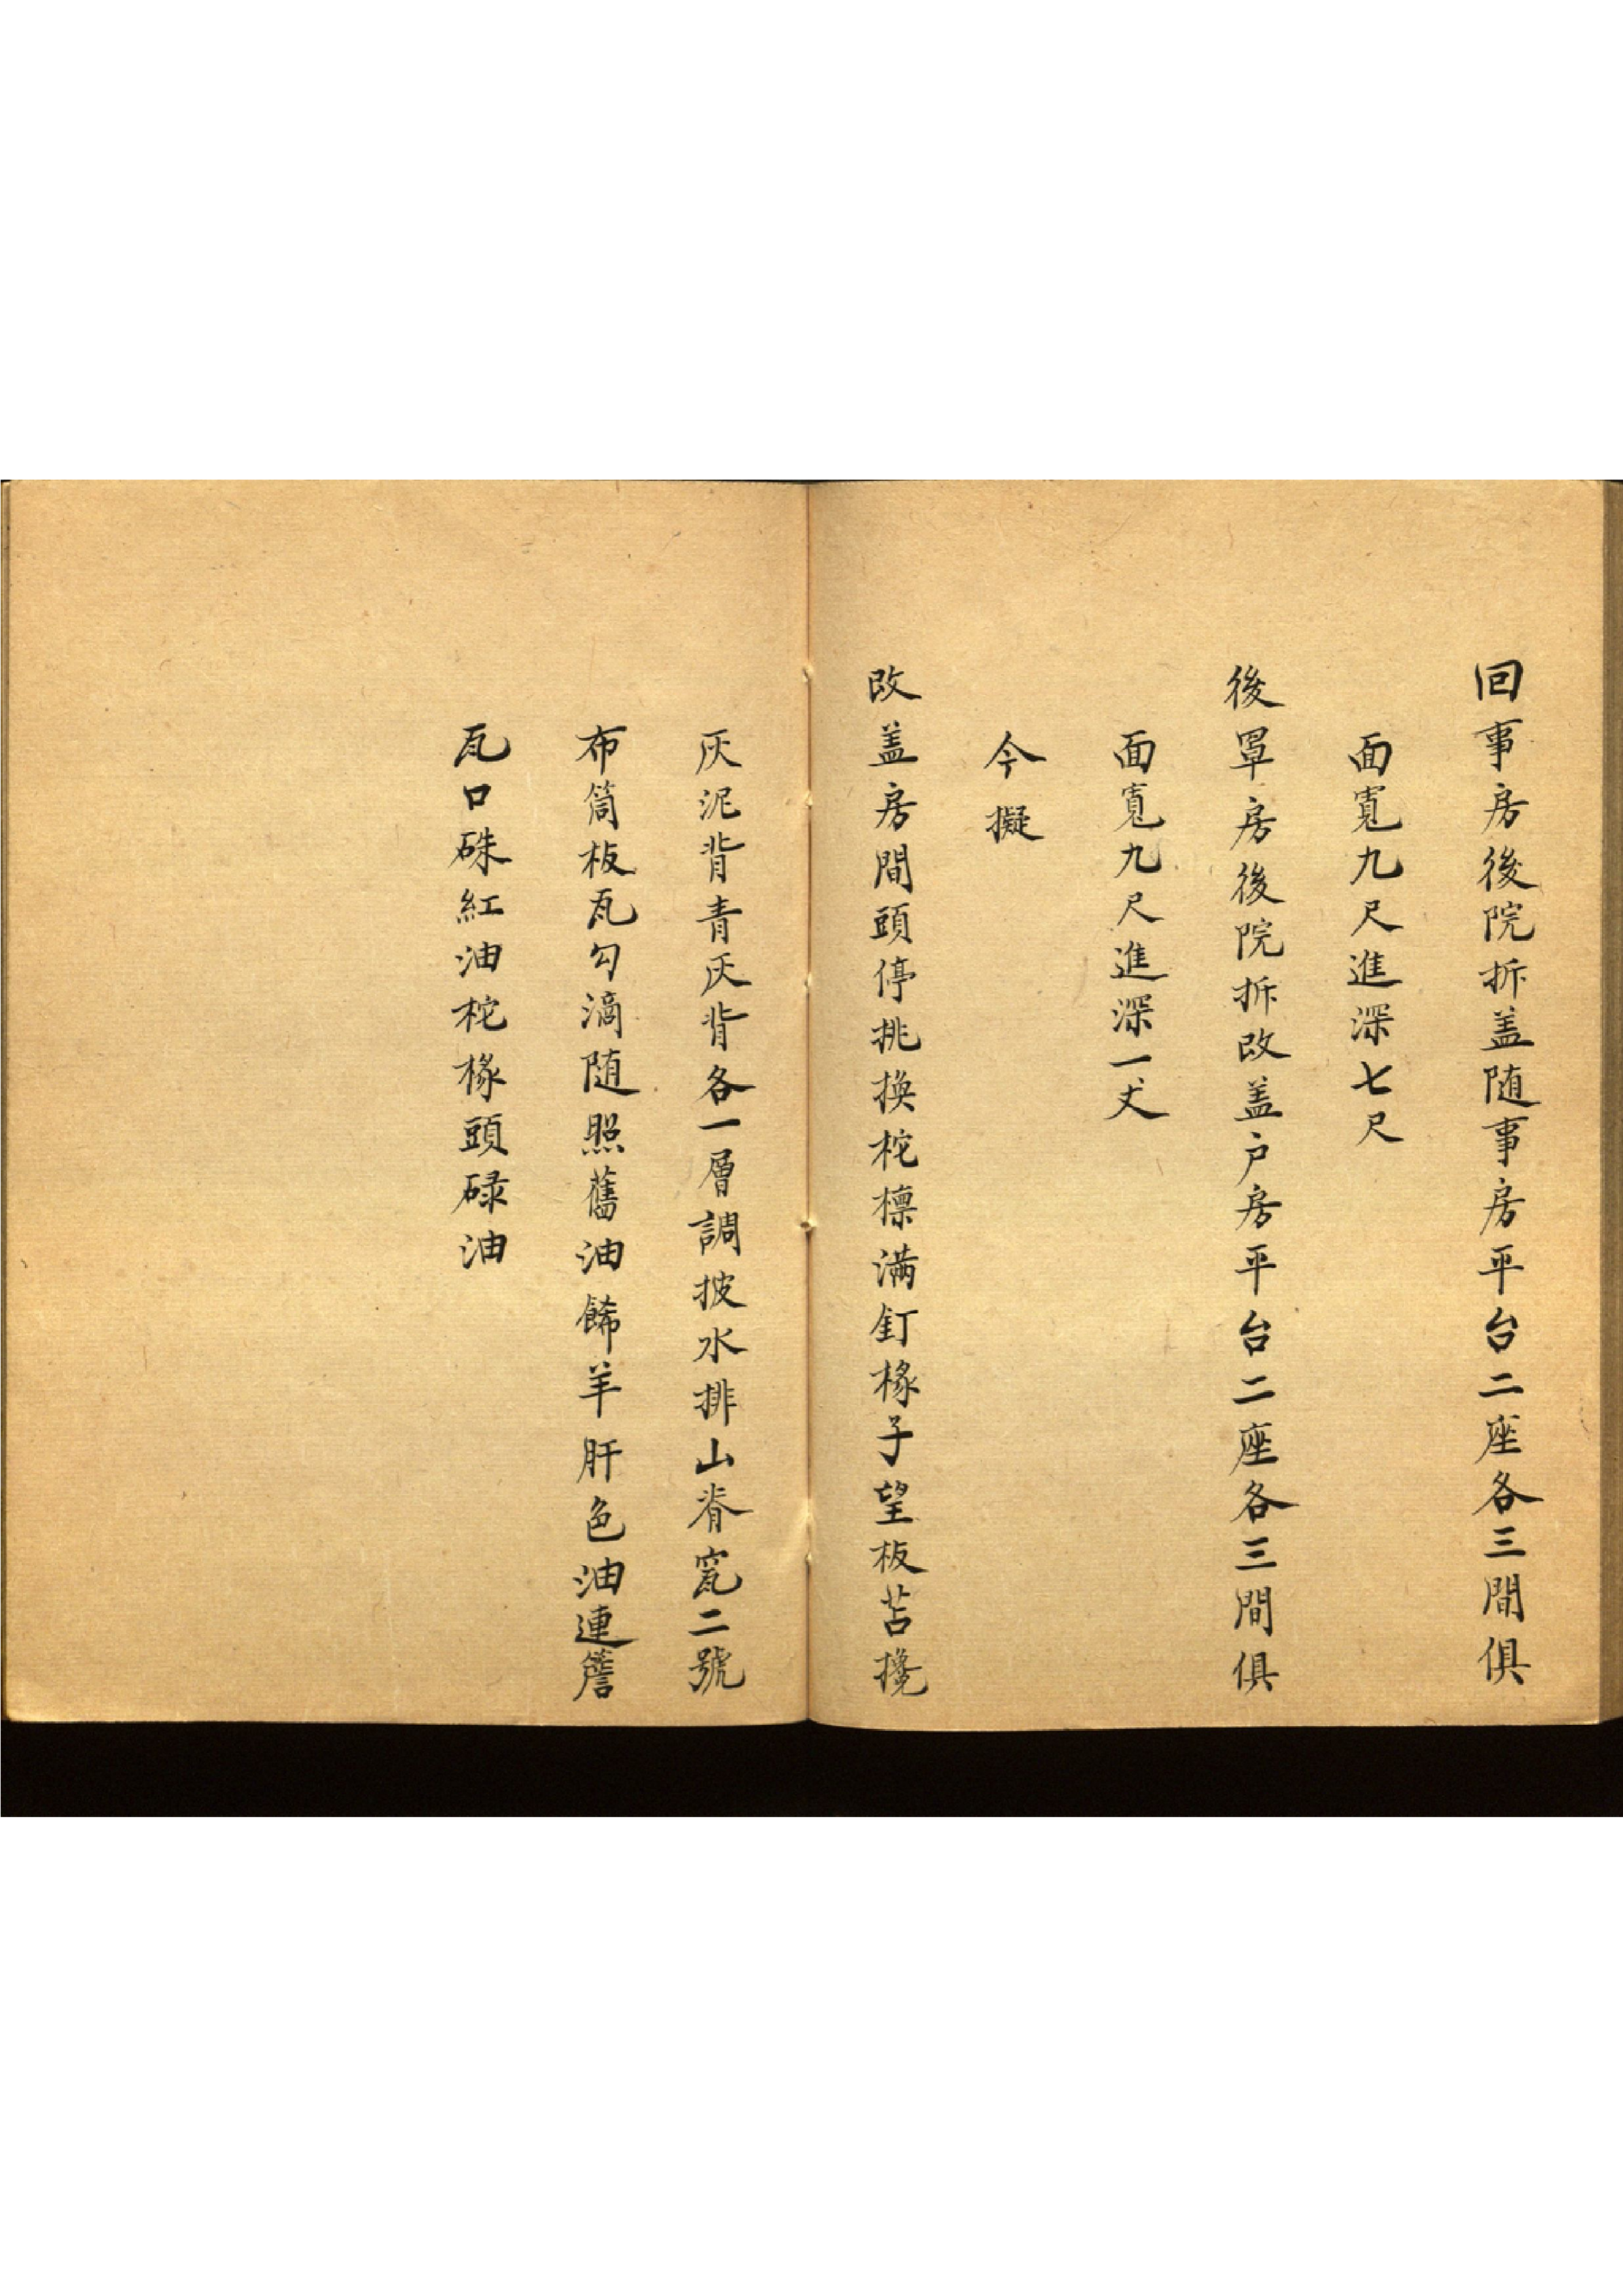 回事房後院拆盖随事房平台二座各三間俱
面寬九尺進深七尺
後罩房後院拆改盖户房平台二座各三間俱
面寬九尺進深一丈
今擬
改盖房間頭停挑换柁檩满釘椽子望板苫搀
灰泥背青灰背各一層調披水排山脊窊二號
布筒板瓦勾滴随照舊油餙羊肝色油連簷
瓦口硃紅油柁椽頭碌油